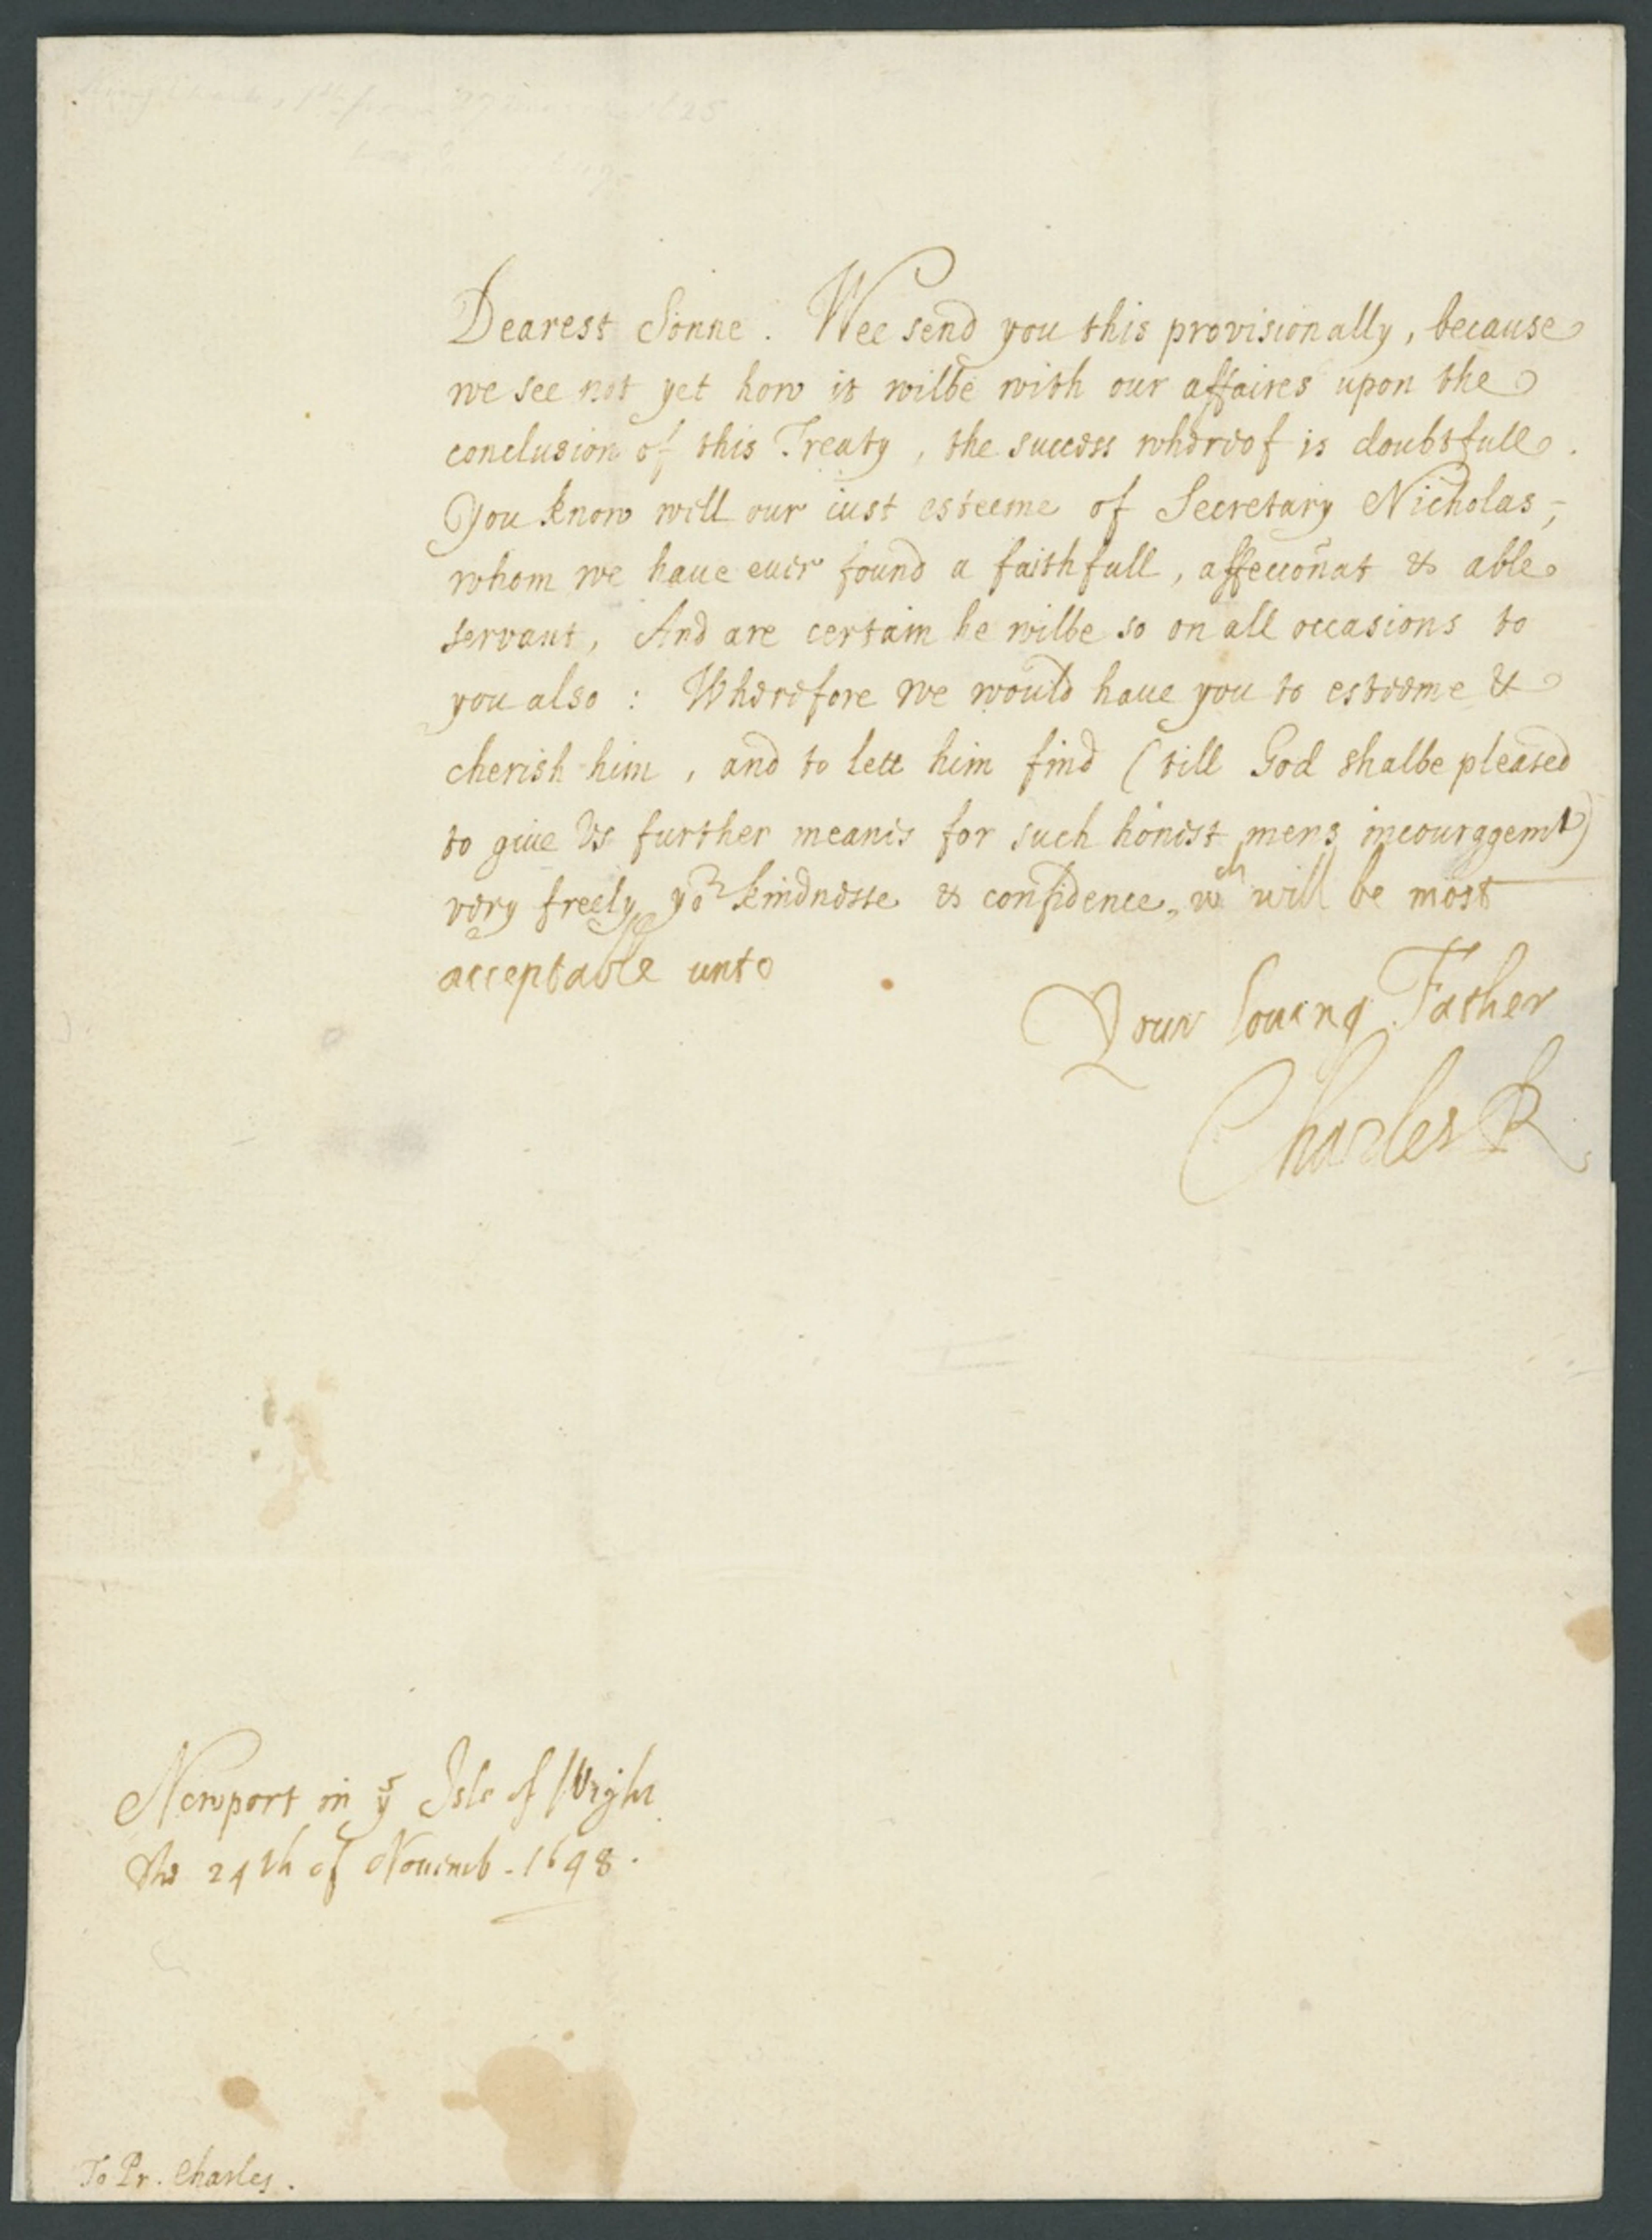 Dearest Sonne. Wee send you this provisionally, because
we see not yet how it wilbe with our affaires upon the
conclusion of this Treaty, the success whereof is doubtfull.
You know well our iust esteeme of Secretary Nicholas,
whom we haue euer found a faithfull, affecc̃onat & able
servant, And are certain he wilbe so on all occasions to
you also : Wherefore we would haue you to esteeme &
cherish him, and to lett him find (till God shalbe pleased
to giue Us further meanes for such honest mens incouragemt)
very freely yor kindnesse & confidence, wch will be most
acceptable unto
Your louing Father
Charles R
Newport in ye Isle of Wight
the 24th of Nouemb. 1648.
To Pr. Charles.